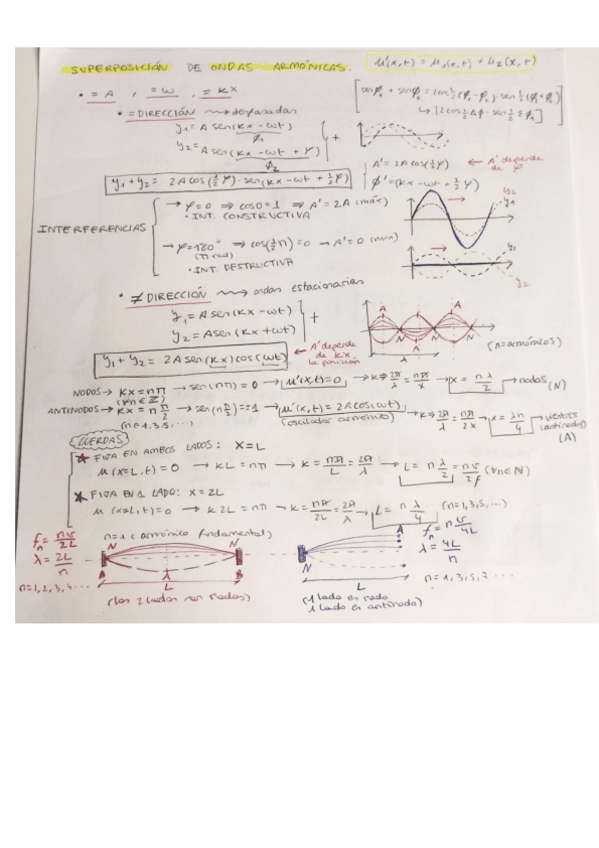 SUPERPOSICIÓN DE ONDAS ARMÓNICAS. μ'(x,t) = μ₁(x,t) + μ₂(x,t)
• = A , = ω , = KX
[senφ₁ + senφ₂ = 2cos½(φ₁-φ₂)·sen½(φ₁+φ₂)
↳ [2cos½Δφ · sen½Σφ]]
• = DIRECCIÓN ⇝ desfasadas
y₁ = A sen(kx - ωt)
φ₁
y₂ = A sen(kx - ωt + φ)
φ₂
+
y₁ + y₂ = 2A cos(½φ)·sen(kx - ωt + ½φ)
A' = 2A cos(½φ) ← A' depende de φ
φ' = (kx - ωt + ½φ)
INTERFERENCIAS
→ φ = 0 ⇒ cos0 = 1 ⇒ A' = 2A (máx)
• INT. CONSTRUCTIVA
→ φ = 180° ⇒ cos(½π) = 0 → A' = 0 (min)
(π rad)
• INT. DESTRUCTIVA
y₂
y₁
y₁
y₂
• ≠ DIRECCIÓN ⇝ ondas estacionarias
y₁ = A sen(kx - ωt)
y₂ = A sen(kx + ωt)
+
y₁ + y₂ = 2A sen(kx) cos(ωt)
← A' depende de kx la posición
A A A
N N N
λ
(n=armónicos)
NODOS → kx = nπ → sen(nπ) = 0 → μ'(x,t) = 0 → k = 2π/λ = nπ/x → x = nλ/2 → nodos (N)
(∀n∈ℤ)
ANTINODOS → kx = nπ/2 → sen(nπ/2) = 1 → μ'(x,t) = 2A cos(ωt) → k = 2π/λ = nπ/2x → x = λn/4 → vientres (antinodos) (A)
(n=1,3,5,...)
(oscilador armónico)
CUERDAS
★ FIJA EN AMBOS LADOS: X=L
μ(x=L,t) = 0 → kL = nπ → k = nπ/L = 2π/λ → L = nλ/2 = nv/2f (∀n∈ℕ)
★ FIJA EN 1 LADO: X=2L
μ(x=L,t) = 0 → k2L = nπ → k = nπ/2L = 2π/λ → L = nλ/4 (n=1,3,5,...)
fₙ = nv/2L
λ = 2L/n
n=1,2,3,4...
n=1 (armónico fundamental)
N N
A
L
(los 2 lados son nodos)
A
N
L
(1 lado es nodo
1 lado es antinodo)
fₙ = nv/4L
λ = 4L/n
n=1,3,5,7...